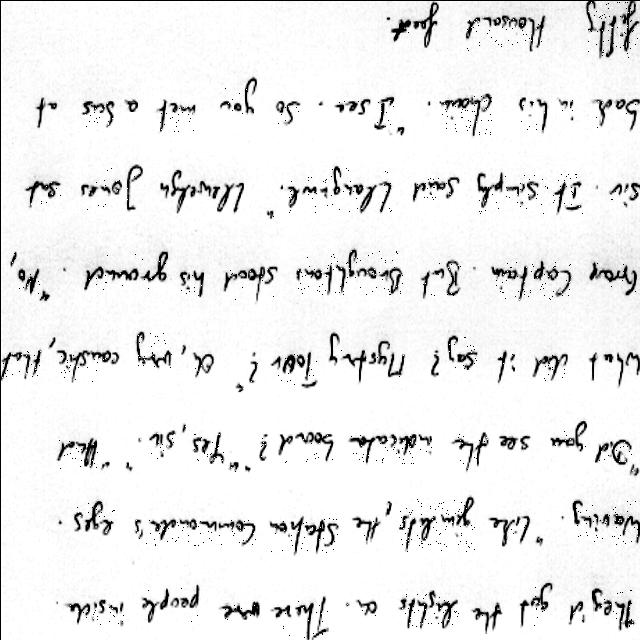 They'd got the lights on. There were people inside
waving." Like gimlets, the Station Commander's eyes.
"Did you see the indicator board?" "Yes, sir." "And
what did it say? Mystery Tour?" Oh, very caustic, that
Group Captain. But Broughtons stood his ground. "No,
sir. It simply said Llewelyn Jones sat
back in his chair. "I see. So you met a bus at
fifty thousand feet.